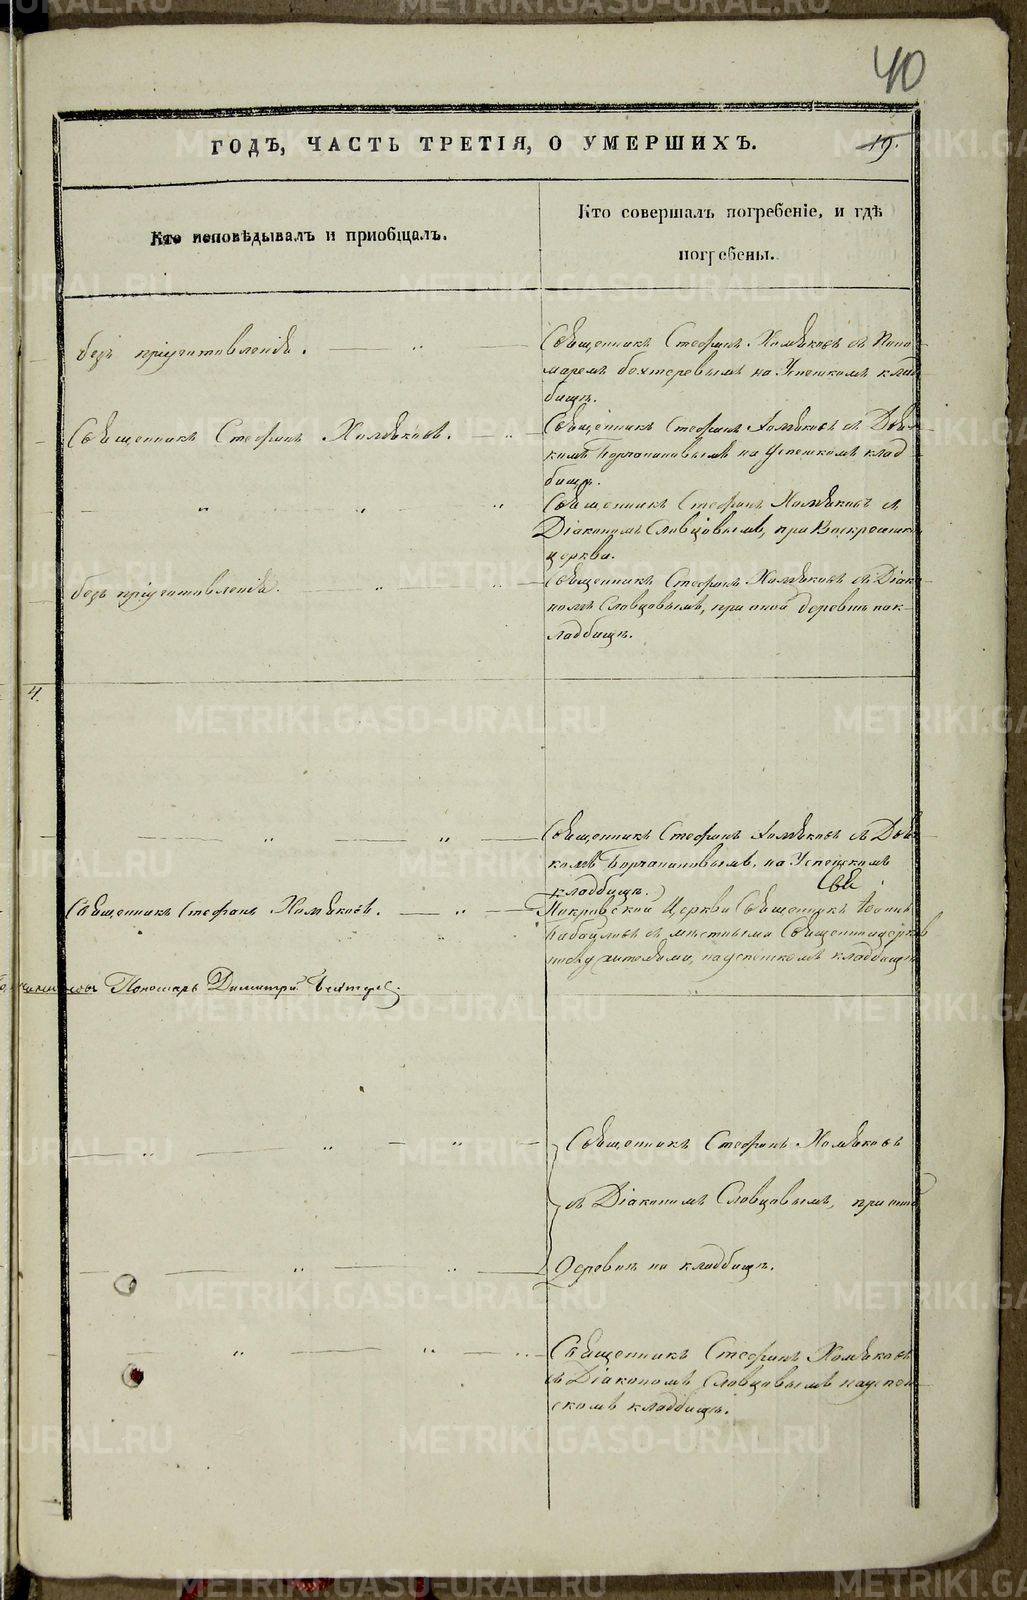 40
ГОДЪ, ЧАСТЬ ТРЕТІЯ, О УМЕРШИХЪ.
19.
Кто исповѣдывалъ и пріобщалъ.
Кто совершалъ погребеніе, и гдѣ
погребены.
безъ пріуготовленія.
Священникъ Стефанъ Хомяковъ съ Поно-
маремъ Бехтеревымъ на Успенскомъ клад-
бищѣ.
Священникъ Стефанъ Хомяковъ.
Священникъ Стефанъ Хомяковъ съ Дьяч-
комъ на Успенскомъ клад-
бищѣ.
Священникъ Стефанъ Хомяковъ съ
Діакономъ Словцовымъ, при
церкви.
безъ пріуготовленія.
Священникъ Стефанъ Хомяковъ съ Діако-
номъ Словцовымъ, при оной деревнѣ на к-
ладбищѣ.
4.
Священникъ Стефанъ Хомяковъ съ Дьяч-
комъ на Успенскомъ
кладбищѣ.
Священникъ Стефанъ Хомяковъ.
Покровской Церкви Священникъ Іоаннъ
съ мѣстными
на успенскомъ кладбищѣ
Пономарь Димитрій Бехтерев
Священникъ Стефанъ Хомяковъ
съ Діакономъ Словцовымъ, при оной
деревнѣ на кладбищѣ.
Священникъ Стефанъ Хомяковъ
съ Діакономъ Словцовымъ на успен-
скомъ кладбищѣ.
METRIKI.GASO-URAL.RU